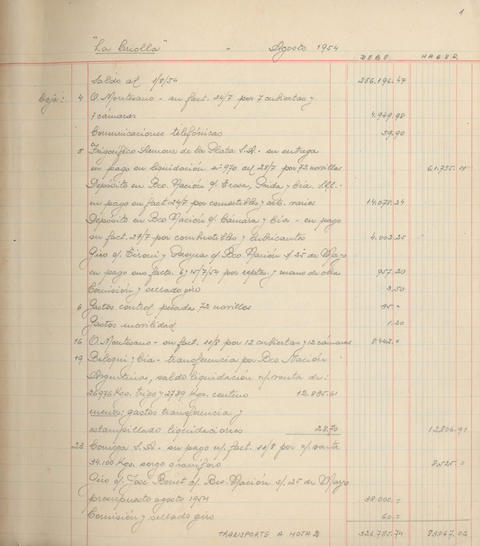 1
"La Criolla" - Agosto 1954
DEBE. HABER.
Saldo al 1/8/54 256.196.47
Caja: 4 O. Montesano - su fact. 24/7 por 7 cubiertas y
7 cámaras 4.949.98
Comunicaciones telefónicas 39.90
5 Frigorífico Armour de la Plata S.A. - su entrega
en pago su liquidación nº 970 del 28/7 por 72 novillos
Depósito en Bco. Nación o/. y Cía.
en pago su fact 24/7 por comestibles y varios 14.078.24
Depósito en Bco Nación o/. Cámara y Cía - en pago
su fact. 27/7 por combustibles y lubricantes
Giro o/. y Bco Nación s/. 25 de Mayo
en pago sus facts. 6 y 15/7/54 por reptos. y mano de obra 957.20
Comisión y sellado giro 3.50
6 Gastos control pesadas 72 novillos
Gastos movilidad 1.20
16 O. Montesano - su fact. 11/8 por 12 cubiertas y 12 cámaras
19 y Cía - transferencia por Bco Nación
Argentina, saldo liquidación n/. venta de:
26976 Kgs. trigo y 2789 Kgs. centeno 12.835.61
menos: gastos transferencia y
estampillado liquidaciones 28.70 12.806.91
23 S.A. - su pago n/. fact. 11/8 por n/. venta
34.100 Kgs. sorgo granífero 8525.=
Giro o/. José Bonet o/. Bco Nación s/. 25 de Mayo
presupuesto agosto 1954 38.000.=
Comisión y sellado giro 60.=
TRANSPORTE A HOJA 2